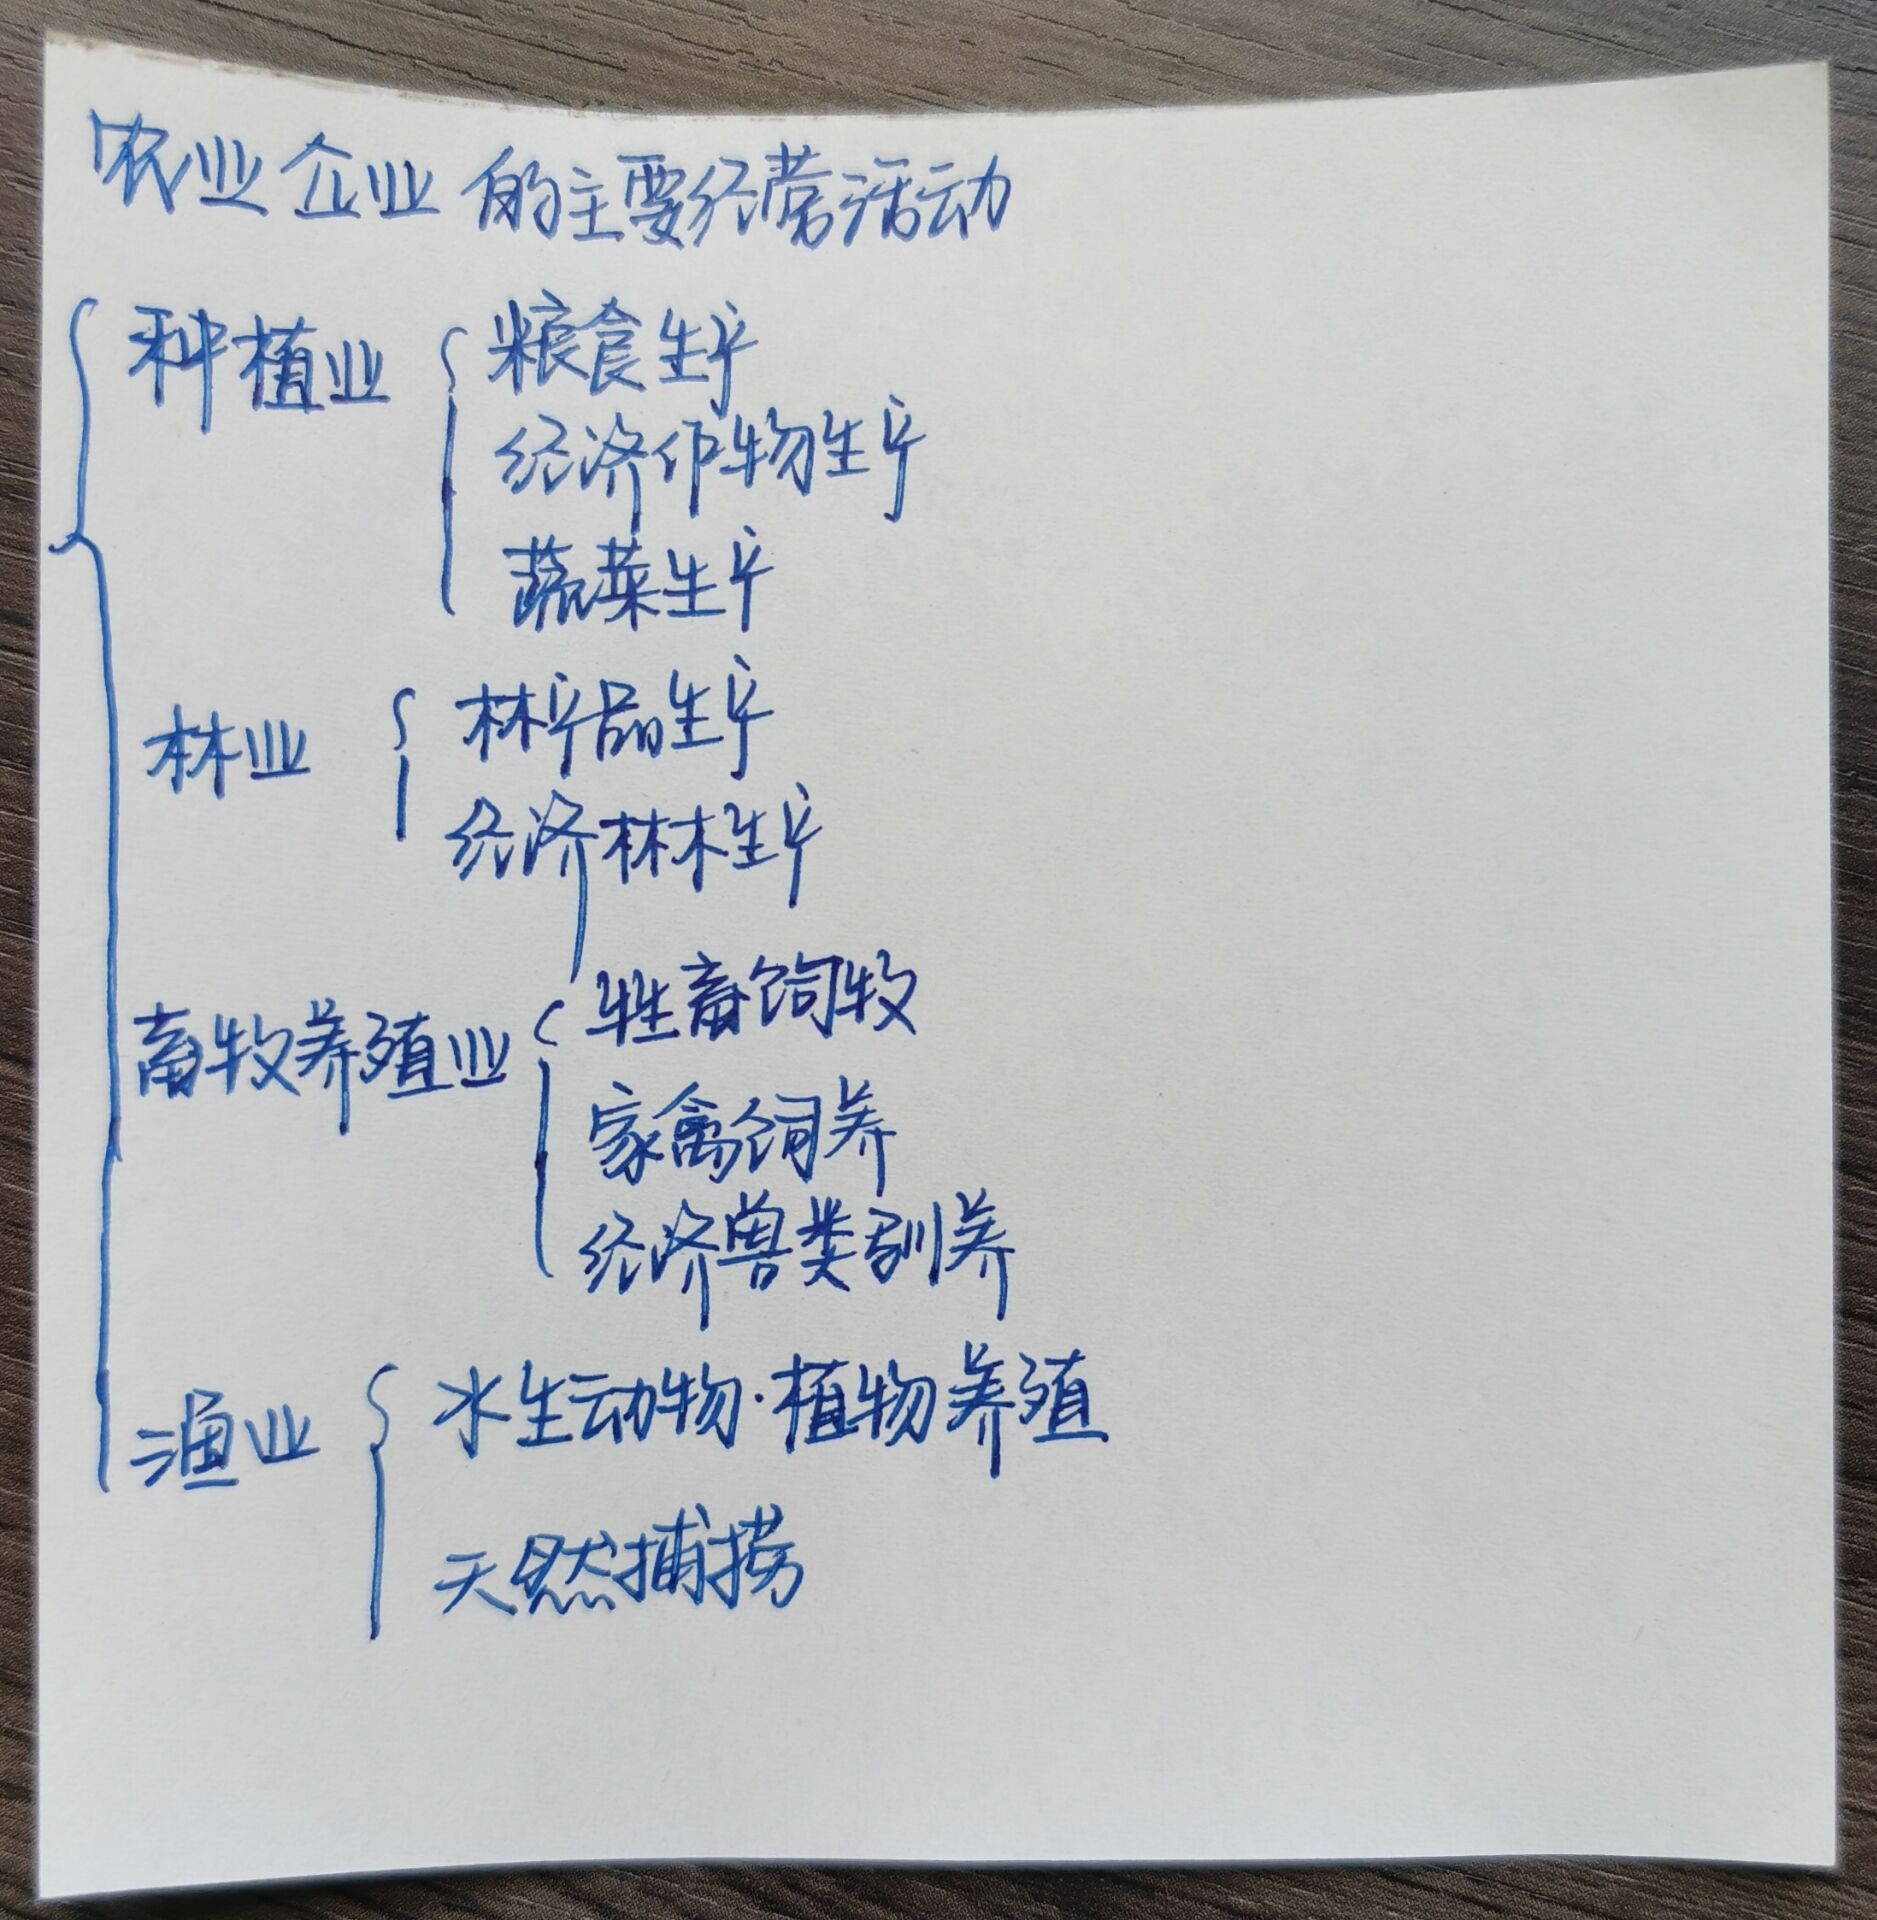 农业企业的主要经营活动
种植业
粮食生产
经济作物生产
蔬菜生产
林业
林产品生产
经济林木生产
畜牧养殖业
牲畜饲牧
家禽饲养
经济兽类驯养
渔业
水生动物·植物养殖
天然捕捞